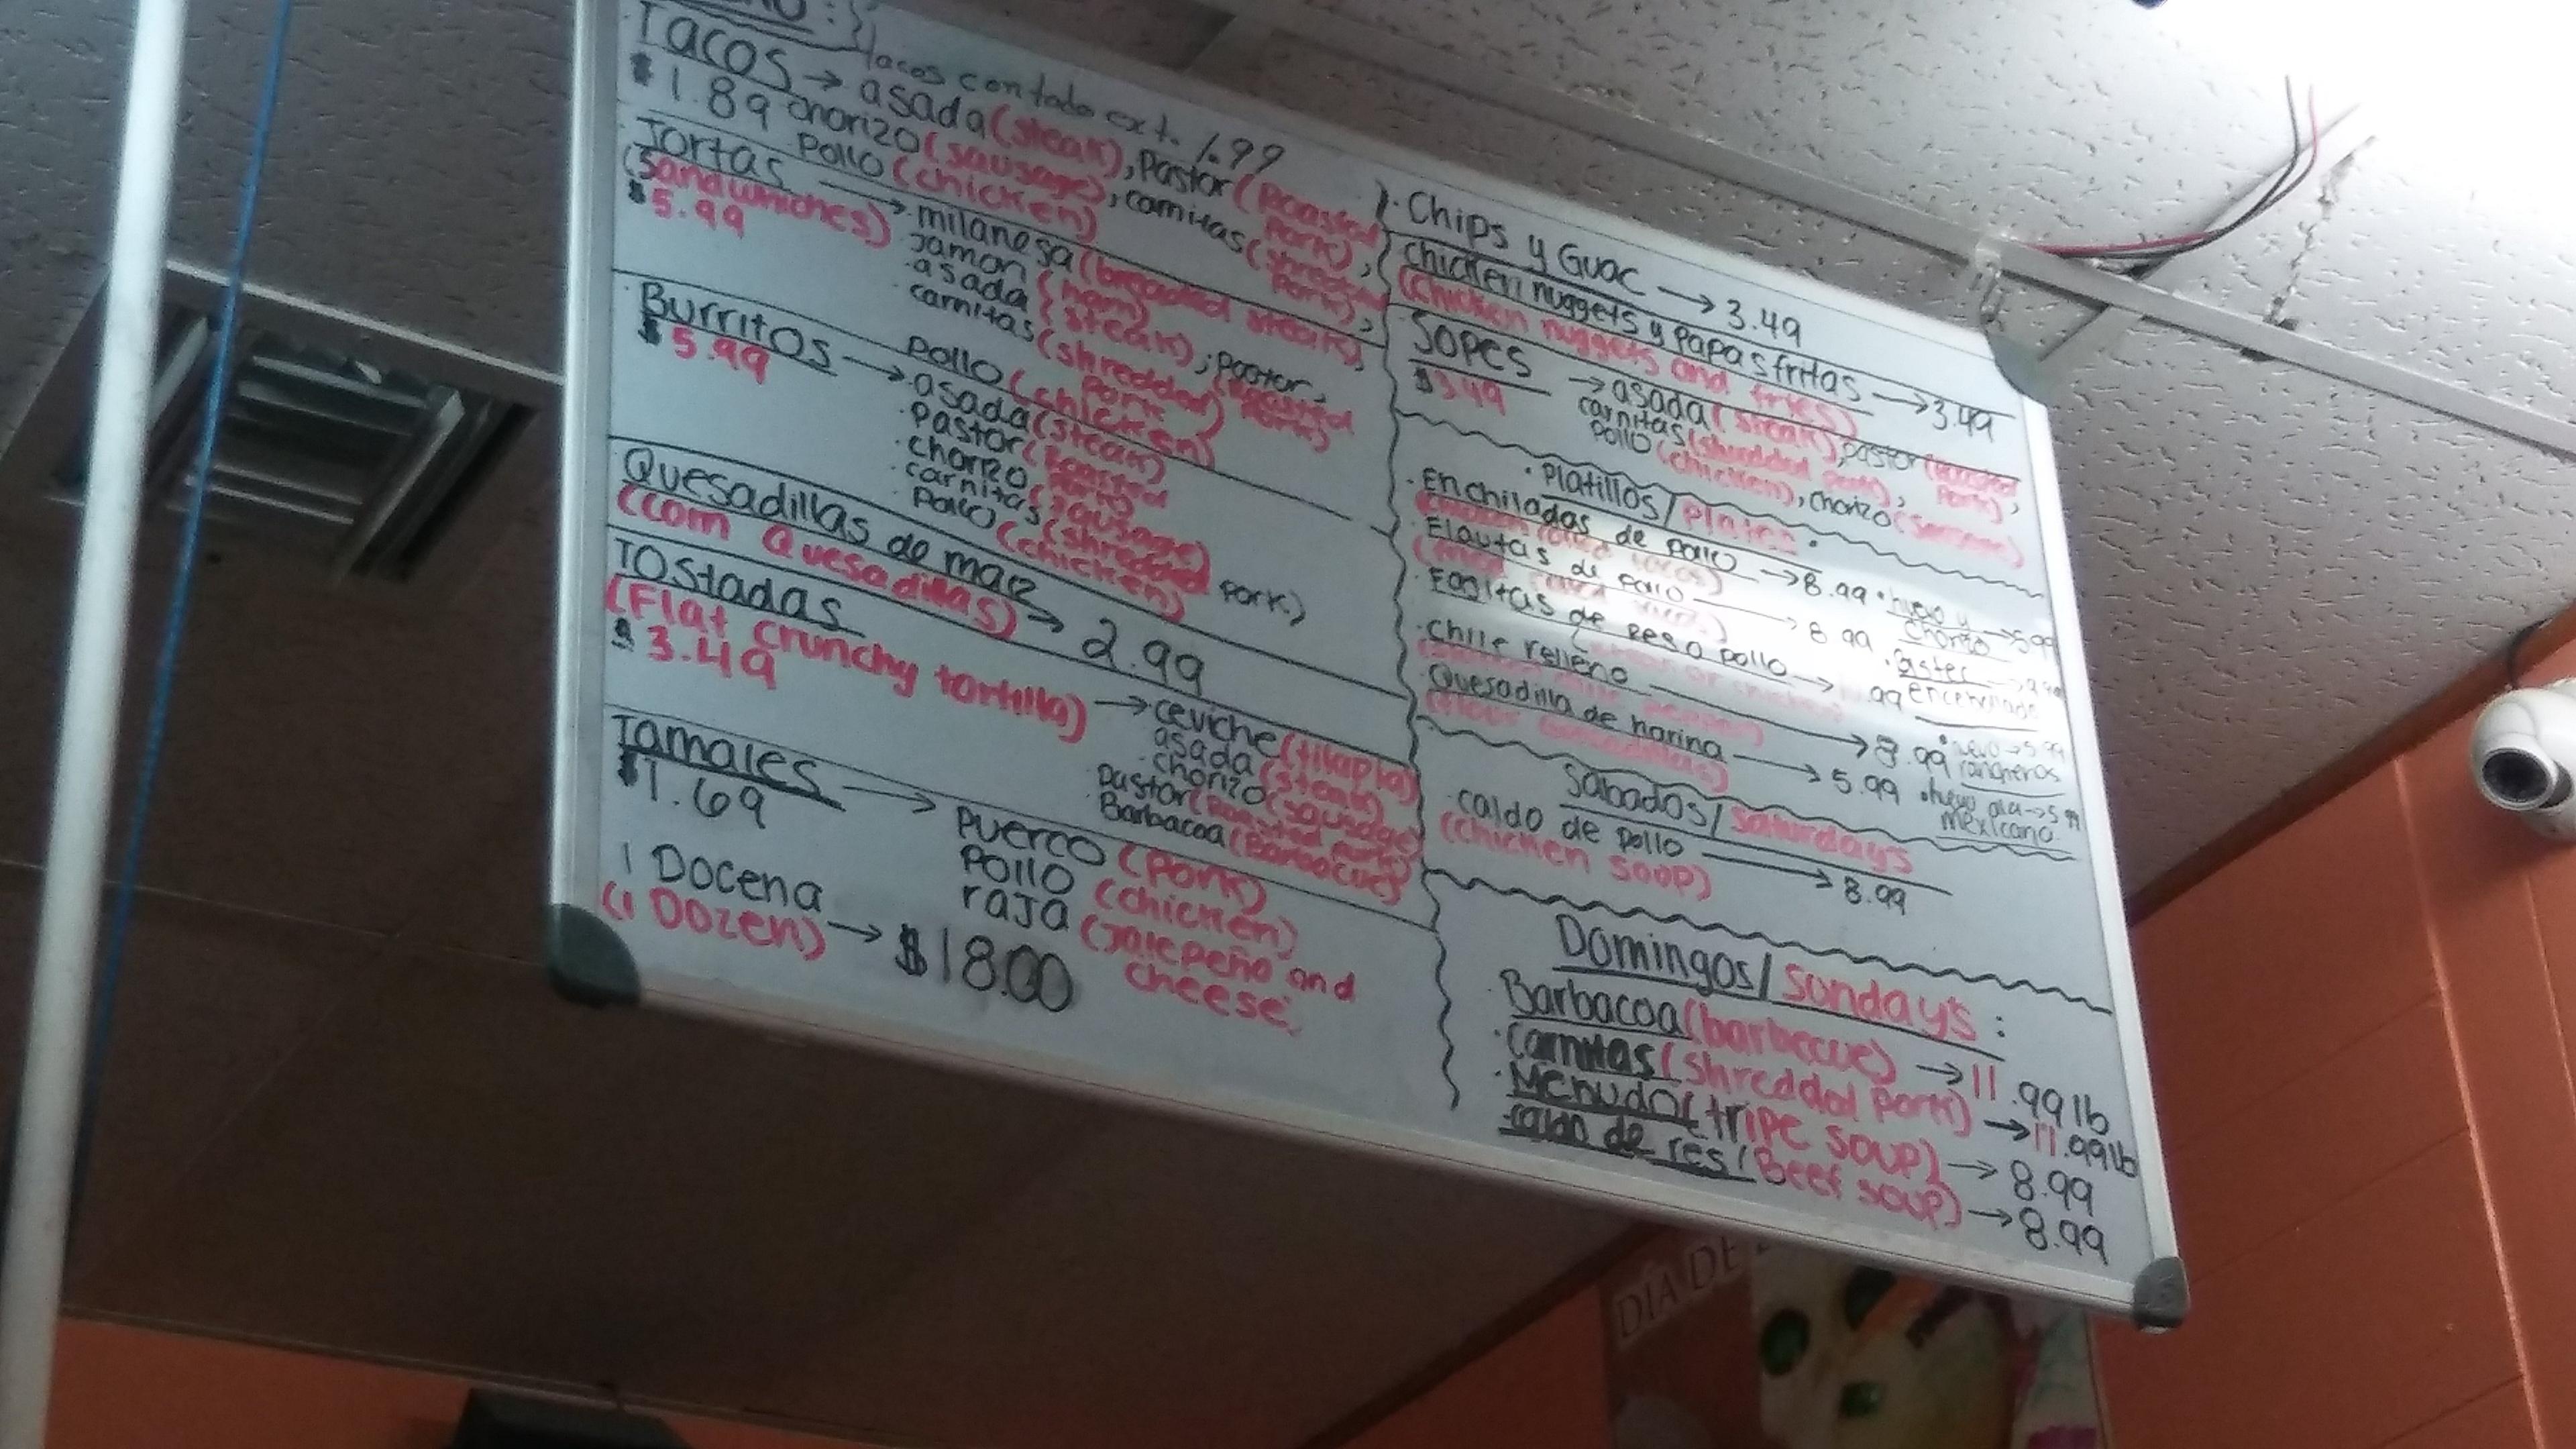 Tacos con todo ext. 1.99
Tacos → asada (steak), Pastor (Roasted Pork),
$1.89 chorizo (sausage), carnitas (shredded Pork),
Pollo (chicken)
Tortas → milanesa (breaded steak),
(Sandwiches) Jamon (ham)
$5.99 asada (steak), Pastor, (Roasted Pork)
carnitas (shredded Pork)
Pollo (chicken)
Burritos → asada (steak)
$5.99 Pastor (Roasted Pork)
chorizo (sausage)
carnitas (shredded Pork)
Pollo (chicken)
Quesadillas de maiz → 2.99
(corn Quesadillas)
Tostadas
(Flat crunchy tortilla) → ceviche (tilapia)
$3.49 asada (steak)
chorizo (sausage)
Pastor (Roasted Pork)
Barbacoa (Barbacue)
Tamales → Puerco (Pork)
$1.69 Pollo (chicken)
raja (Jalepeño and cheese)
1 Docena → $18.00
(1 Dozen)
Chips y Guac → 3.49
Chicken nuggets y Papas fritas → 3.49
(Chicken nuggets and fries)
Sopes → asada (steak), Pastor (Roasted Pork),
$3.49 carnitas (shredded Pork),
Pollo (chicken), chorizo (sausage)
Platillos/
Enchiladas de Pollo → 8.99
Flautas de Pollo → 8.99
Fagitas de Res o Pollo → .99
Chile relleno → .99
Quesadilla de harina → 5.99
huevo y chorizo → 5.99
rancheros
mexicano
Sabados/Saturdays
caldo de Pollo → 8.99
(chicken soup)
Domingos/Sundays:
Barbacoa (barbecue) → 11.99 lb
Carnitas (Shredded Pork) → 11.99 lb
Menudo (tripe soup) → 8.99
caldo de res (Beef soup) → 8.99
DÍA DE